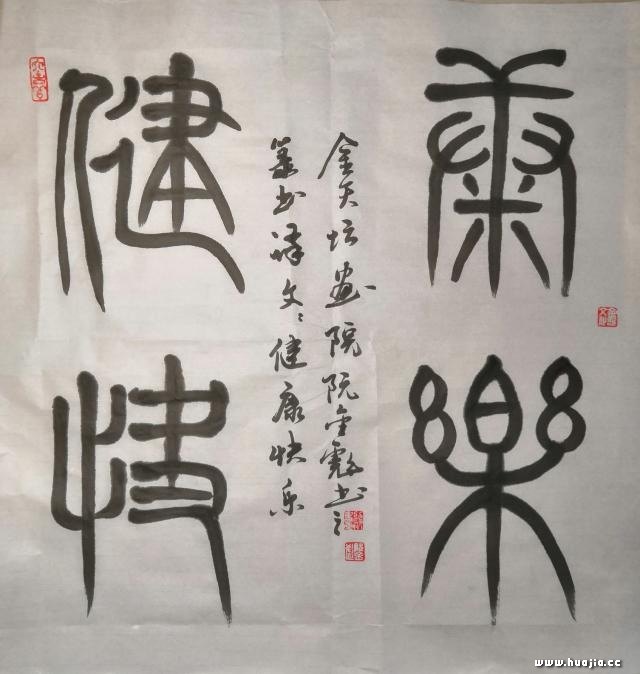 健康
快樂
金天坛画院阮金彪书之
篆书译文：健康快乐
www.huajia.cc